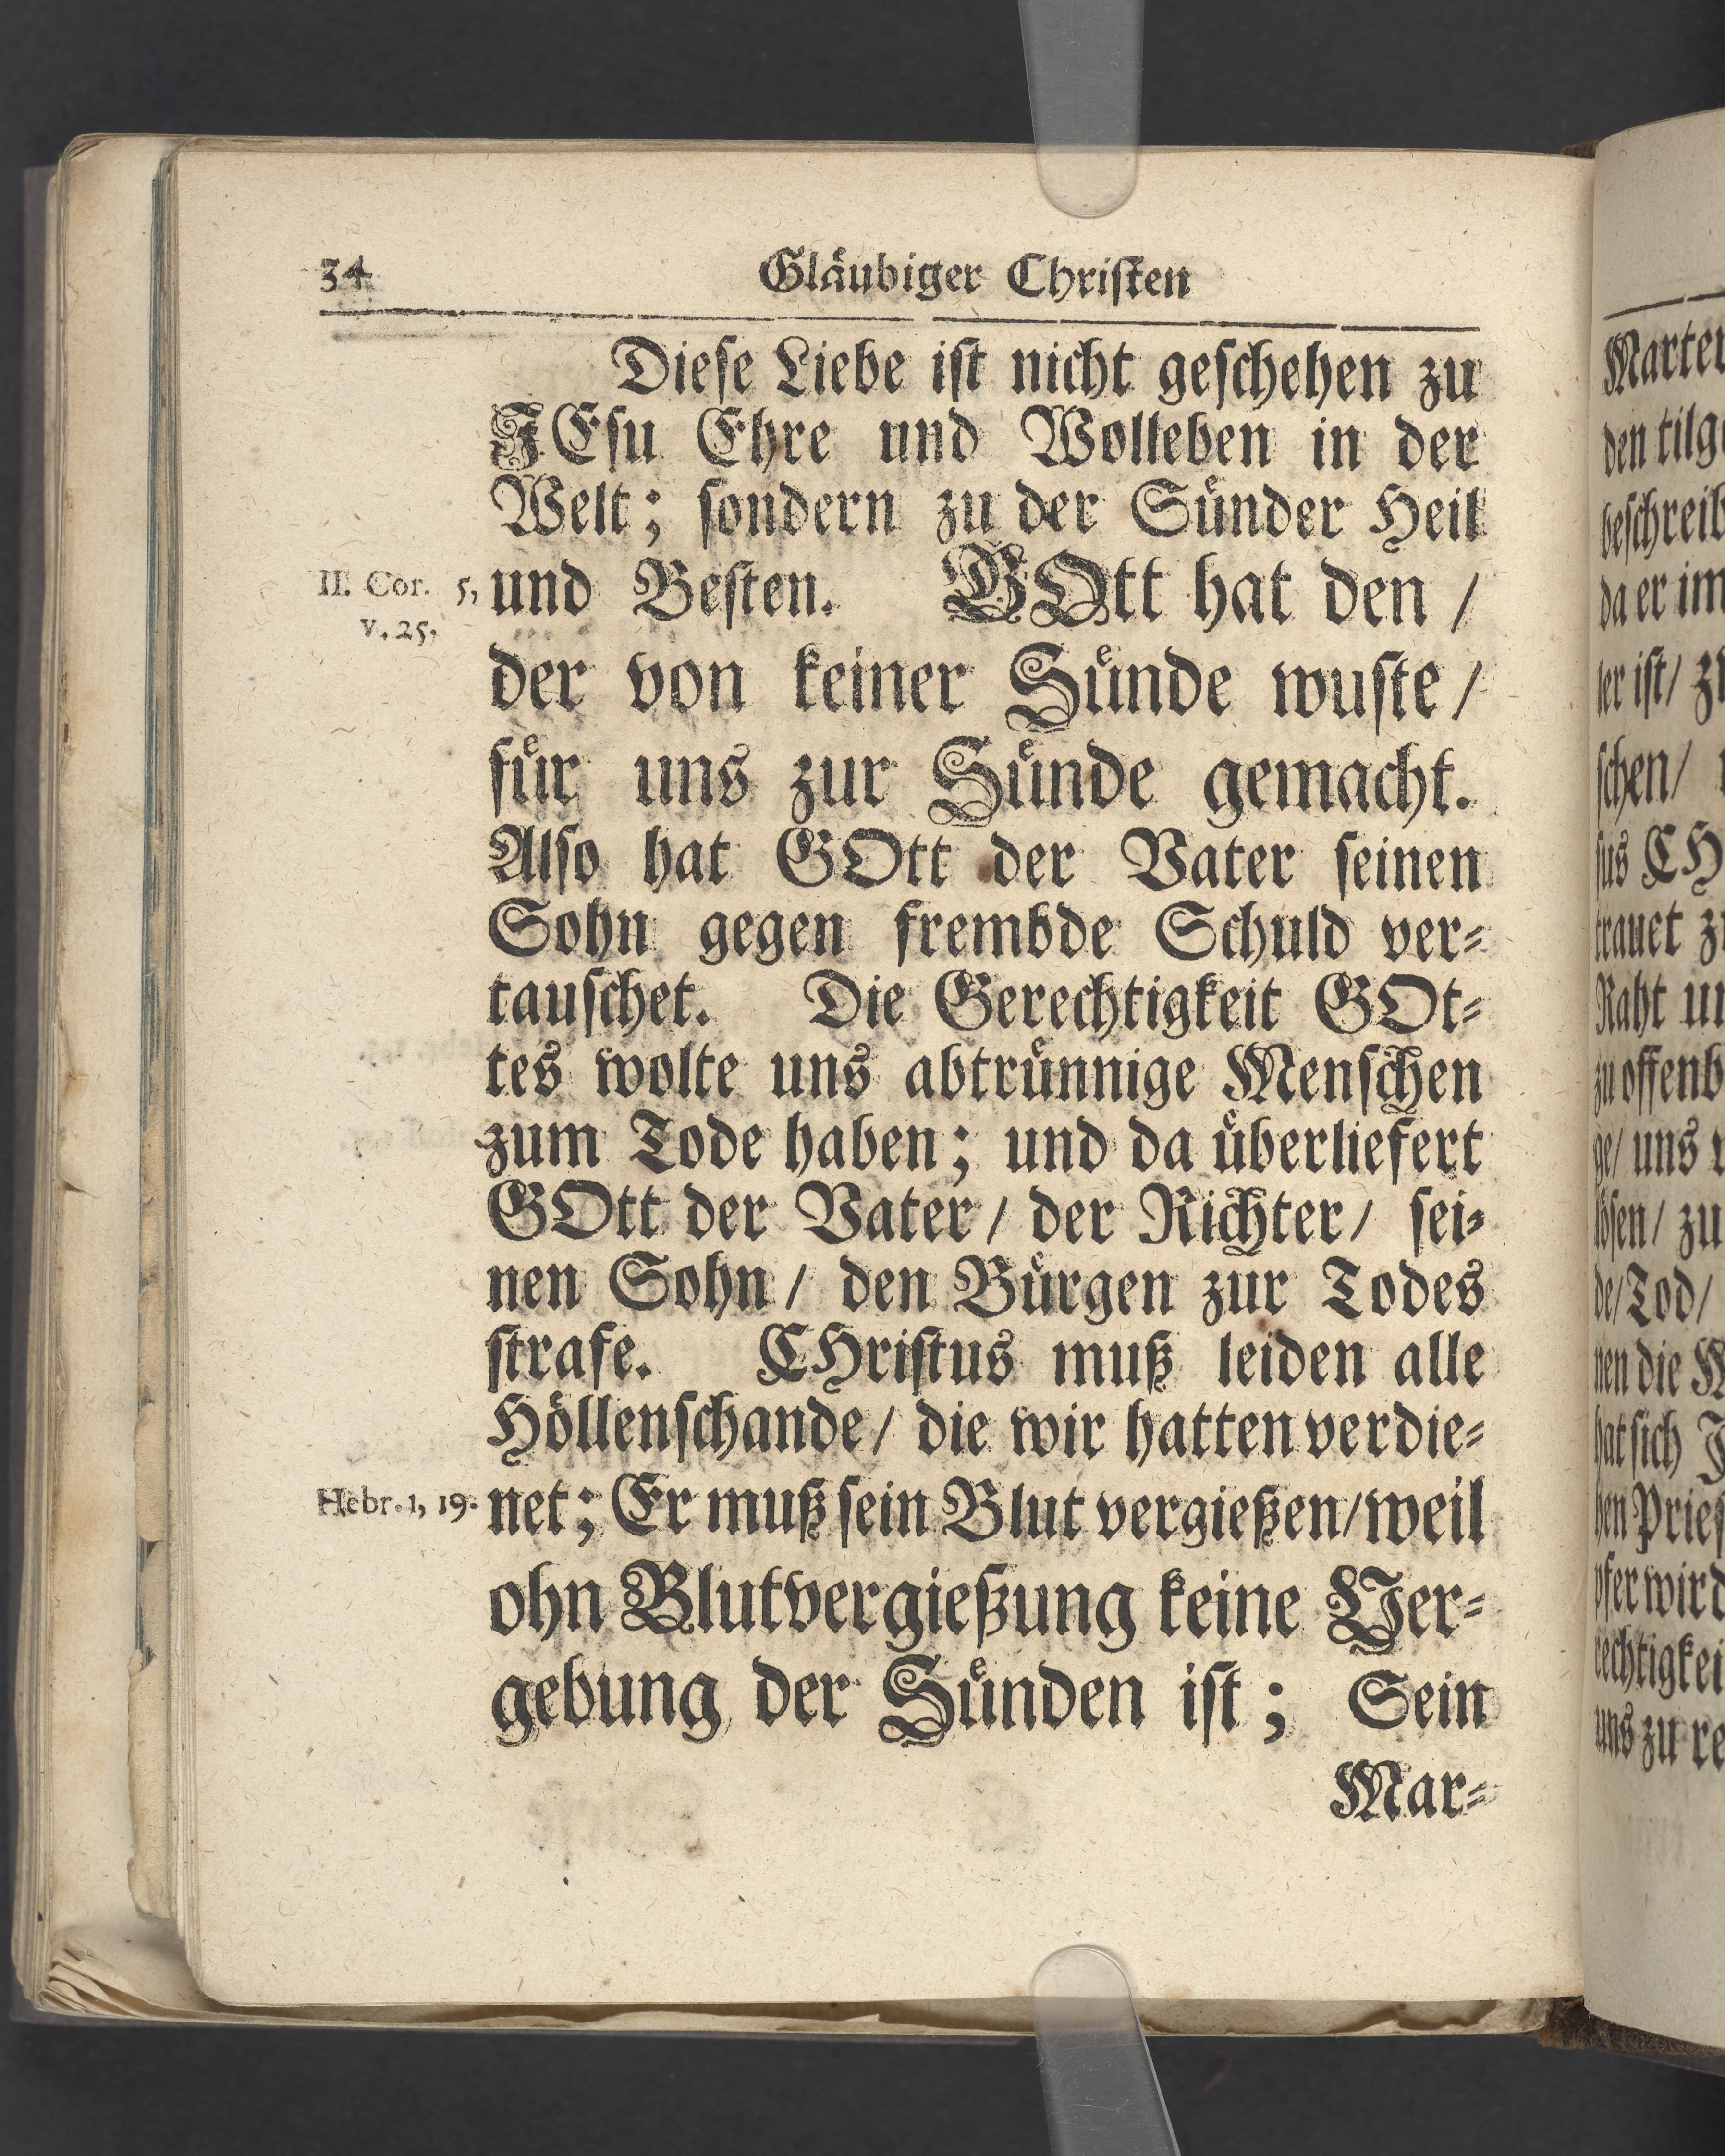 34 Gläubiger Christen
Diese Liebe ist nicht geschehen zu
JEsu Ehre und Wolleben in der
Welt; sondern zu der Sünder Heil
II. Cor. 5, und Besten. GOtt hat den /
v. 25.
der von keiner Sünde wuste /
für uns zur Sünde gemacht.
Also hat GOtt der Vater seinen
Sohn gegen frembde Schuld ver-
tauschet. Die Gerechtigkeit GOt-
tes wolte uns abtrünnige Menschen
zum Tode haben; und da überliefert
GOtt der Vater / der Richter / sei-
nen Sohn / den Bürgen zur Todes
strafe. CHristus muß leiden alle
Höllenschande / die wir hatten verdie-
Hebr. 1, 19. net; Er muß sein Blut vergießen / weil
ohn Blutvergießung keine Ver-
gebung der Sünden ist; Sein
Mar-
Marter
den tilg
beschreib
da er im
ter ist / z
schen /
sus CH
trauet z
Raht un
zu offenb
ge / uns
lösen / zu
de / Tod /
nen die
hat sich J
hen Pries
pfer wird
rechtigkei
uns zu re